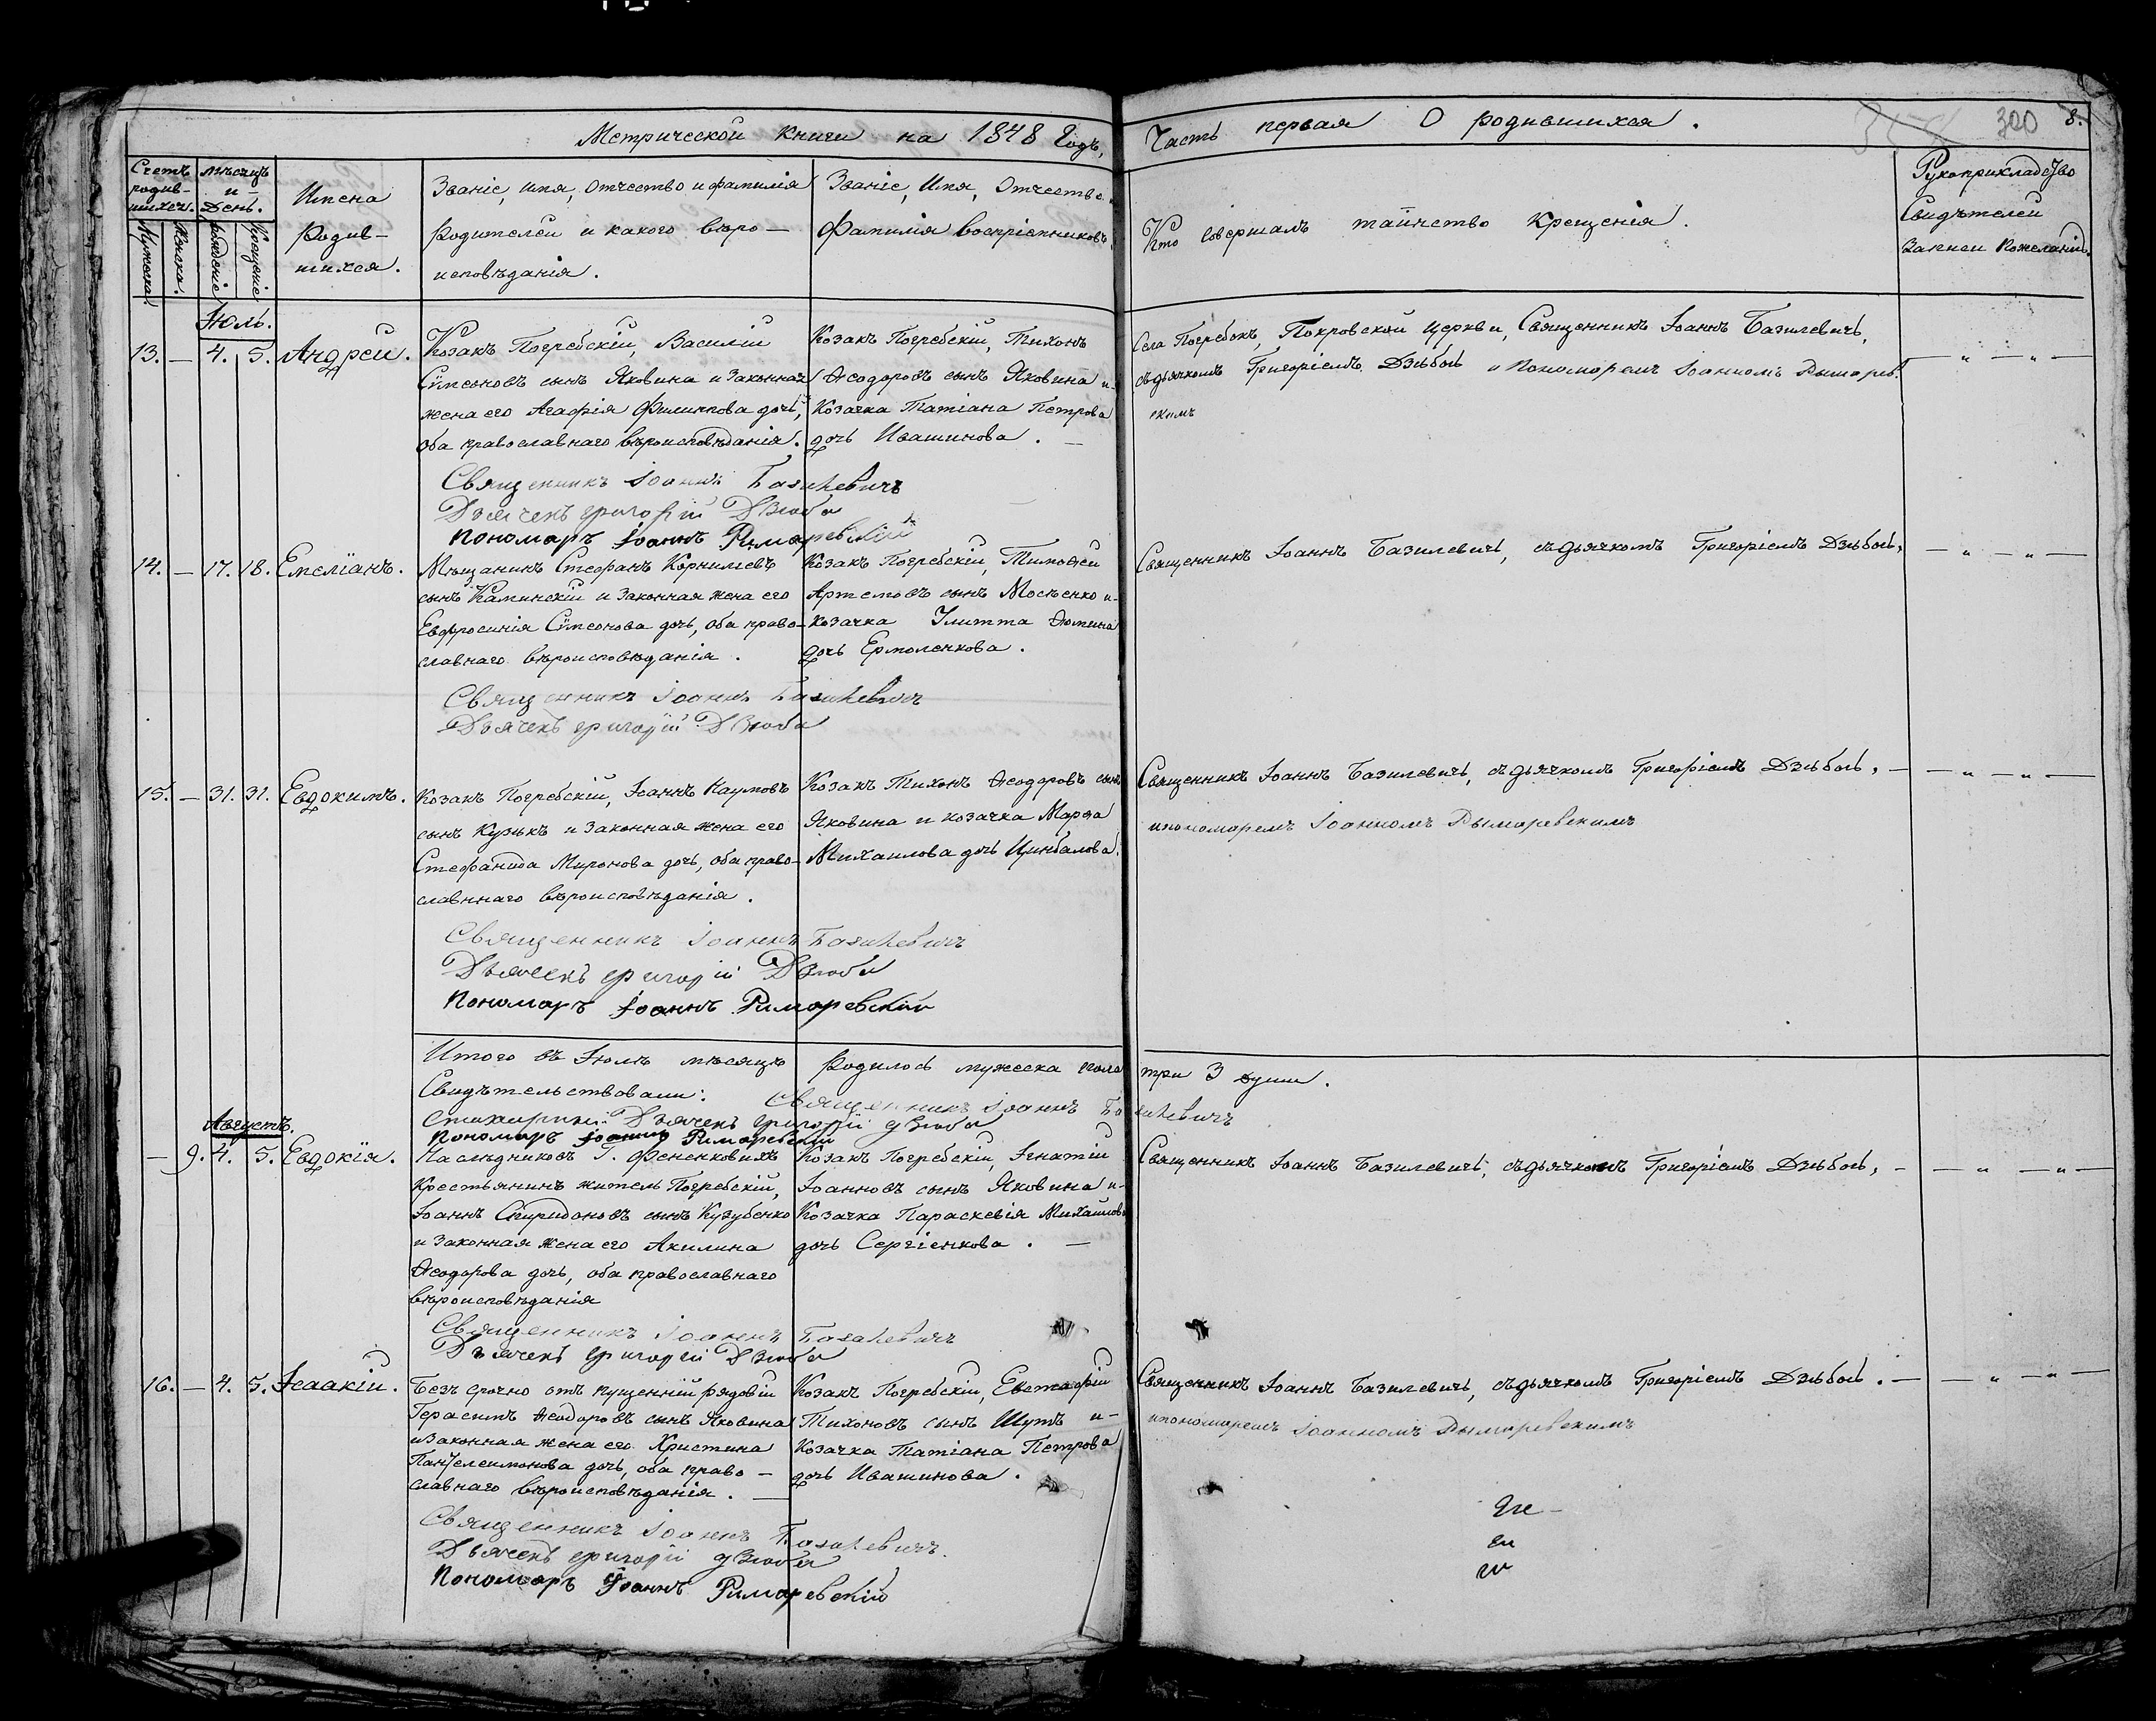 Метрической книги на 1848 Годъ,
Часть первая О родившихся.
300 8.
Счетъ родив-шихся.
Мужеска.
Женска.
Мѣсяцъ и День.
рожденіе
Крещеніе
Имена
Родив-
шихся.
Званіе, имя, отчество и фамилія
Родителей и какого вѣро-
исповѣданія.
Званіе, Имя, Отчество
Фамилія воспріемниковъ
Кто совершалъ таинство Крещенія.
Рукоприкладство
Свидѣтелей
Записи Пожеланію.
Іюль.
13. — 4. 5. Андрей.
Козакъ Погребскій, Василій
Сѵмеоновъ сынъ Яковина и Законная
жена его Агафія Филиппова дочь,
оба православнаго вѣроисповѣданія.
Козакъ Погребскій, Тихонъ
Ѳеодоровъ сынъ Яковина и-
Козачка Татіана Петрова
дочь Ивашинова. —
Села Погребокъ, Покровской Церкви, Священникъ Іоаннъ Базилевичь,
съ дьячкомъ Григоріемъ Дзюбою и Пономаремъ Іоанномъ Рымарев-
скимъ
— „ — „ —
Священникъ Іоаннъ Базилевичъ
Дьячекъ григорій Дзюба
Пономаръ Іоаннъ Римаревскій
14. — 17. 18. Емеліанъ.
Мѣщанинъ Стефанъ Корниліевъ
сынъ Каминскій и Законная жена его
Евфросинія Сѵмеонова дочь, оба право-
славнаго вѣроисповѣданія.
Козакъ Погребскій, Тимоѳей
Артемовъ сынъ Мосѣенко и-
козачка Улитта Ѳомина
дочь Ермоленкова.
Священникъ Іоаннъ Базилевичь, съ дьячкомъ Григоріемъ Дзюбою,
— „ — „ —
Священникъ Іоаннъ Базилевичъ
Дьячекъ григорій Дзюба
15. — 31. 31. Евдокимъ.
Козакъ Погребскій, Іоаннъ Наумовъ
сынъ Кузькъ и Законная жена его
Стефанида Миронова дочь, оба право-
славнаго вѣроисповѣданія.
Козакъ Тихонъ Ѳеодоровъ сынъ
Яковина и козачка Марѳа
Михаилова дочь Цимбалова.
Священникъ Іоаннъ Базилевичь, съ дьячкомъ Григоріемъ Дзюбою, —
и пономаремъ Іоанномъ Рымаревскимъ
— „ — „ —
Священникъ Іоаннъ Базилевичъ
Дьячекъ григорій Дзюба
Пономаръ Іоаннъ Римаревскій
Итого въ Іюлѣ мѣсяцѣ родилось мужеска пола три 3 души.
Свидѣтельствовали: Священникъ Іоаннъ Базилевичъ
Стихарный Дьячекъ григорій дзюба
Пономаръ Іоаннъ Римаревскій
Августъ.
— 9. 4. 5. Евдокія.
Наслѣдниковъ Г. Фененковихъ
Крестьянинъ житель Погребскій,
Іоаннъ Спиридоновъ сынъ Кузубенко
и Законная жена его Акилина
Ѳеодорова дочь, оба православнаго
вѣроисповѣданія
Козакъ Погребскій, Игнатій
Іоанновъ сынъ Яковина и-
Козачка Параскевія Михаилова
дочь Сергіенкова. —
Священникъ Іоаннъ Базилевичь, съ дьячкомъ Григоріемъ Дзюбою, —
— „ — „ —
Священникъ Іоаннъ Базилевичъ
Дьячекъ григорій Дзюба
16. — 4. 5. Исаакій.
Безъ срочно отъ пущенній рядовій
Герасимъ Ѳеодоровъ сынъ Яковина
и Законная жена его Христина
Пантелеимонова дочь, оба право-
славнаго вѣроисповѣданія. —
Козакъ Погребскій, Евстафій
Тихоновъ сынъ Шутъ и-
Козачка Татіана Петрова
дочь Ивашинова.
Священникъ Іоаннъ Базилевичь, съ дьячкомъ Григоріемъ Дзюбою. —
и пономаремъ Іоанномъ Рымаревскимъ
— „ — „ —
Священникъ Іоаннъ Базилевичъ.
Дьячекъ григорій дзюба
Пономаръ Іоаннъ Римаревскій